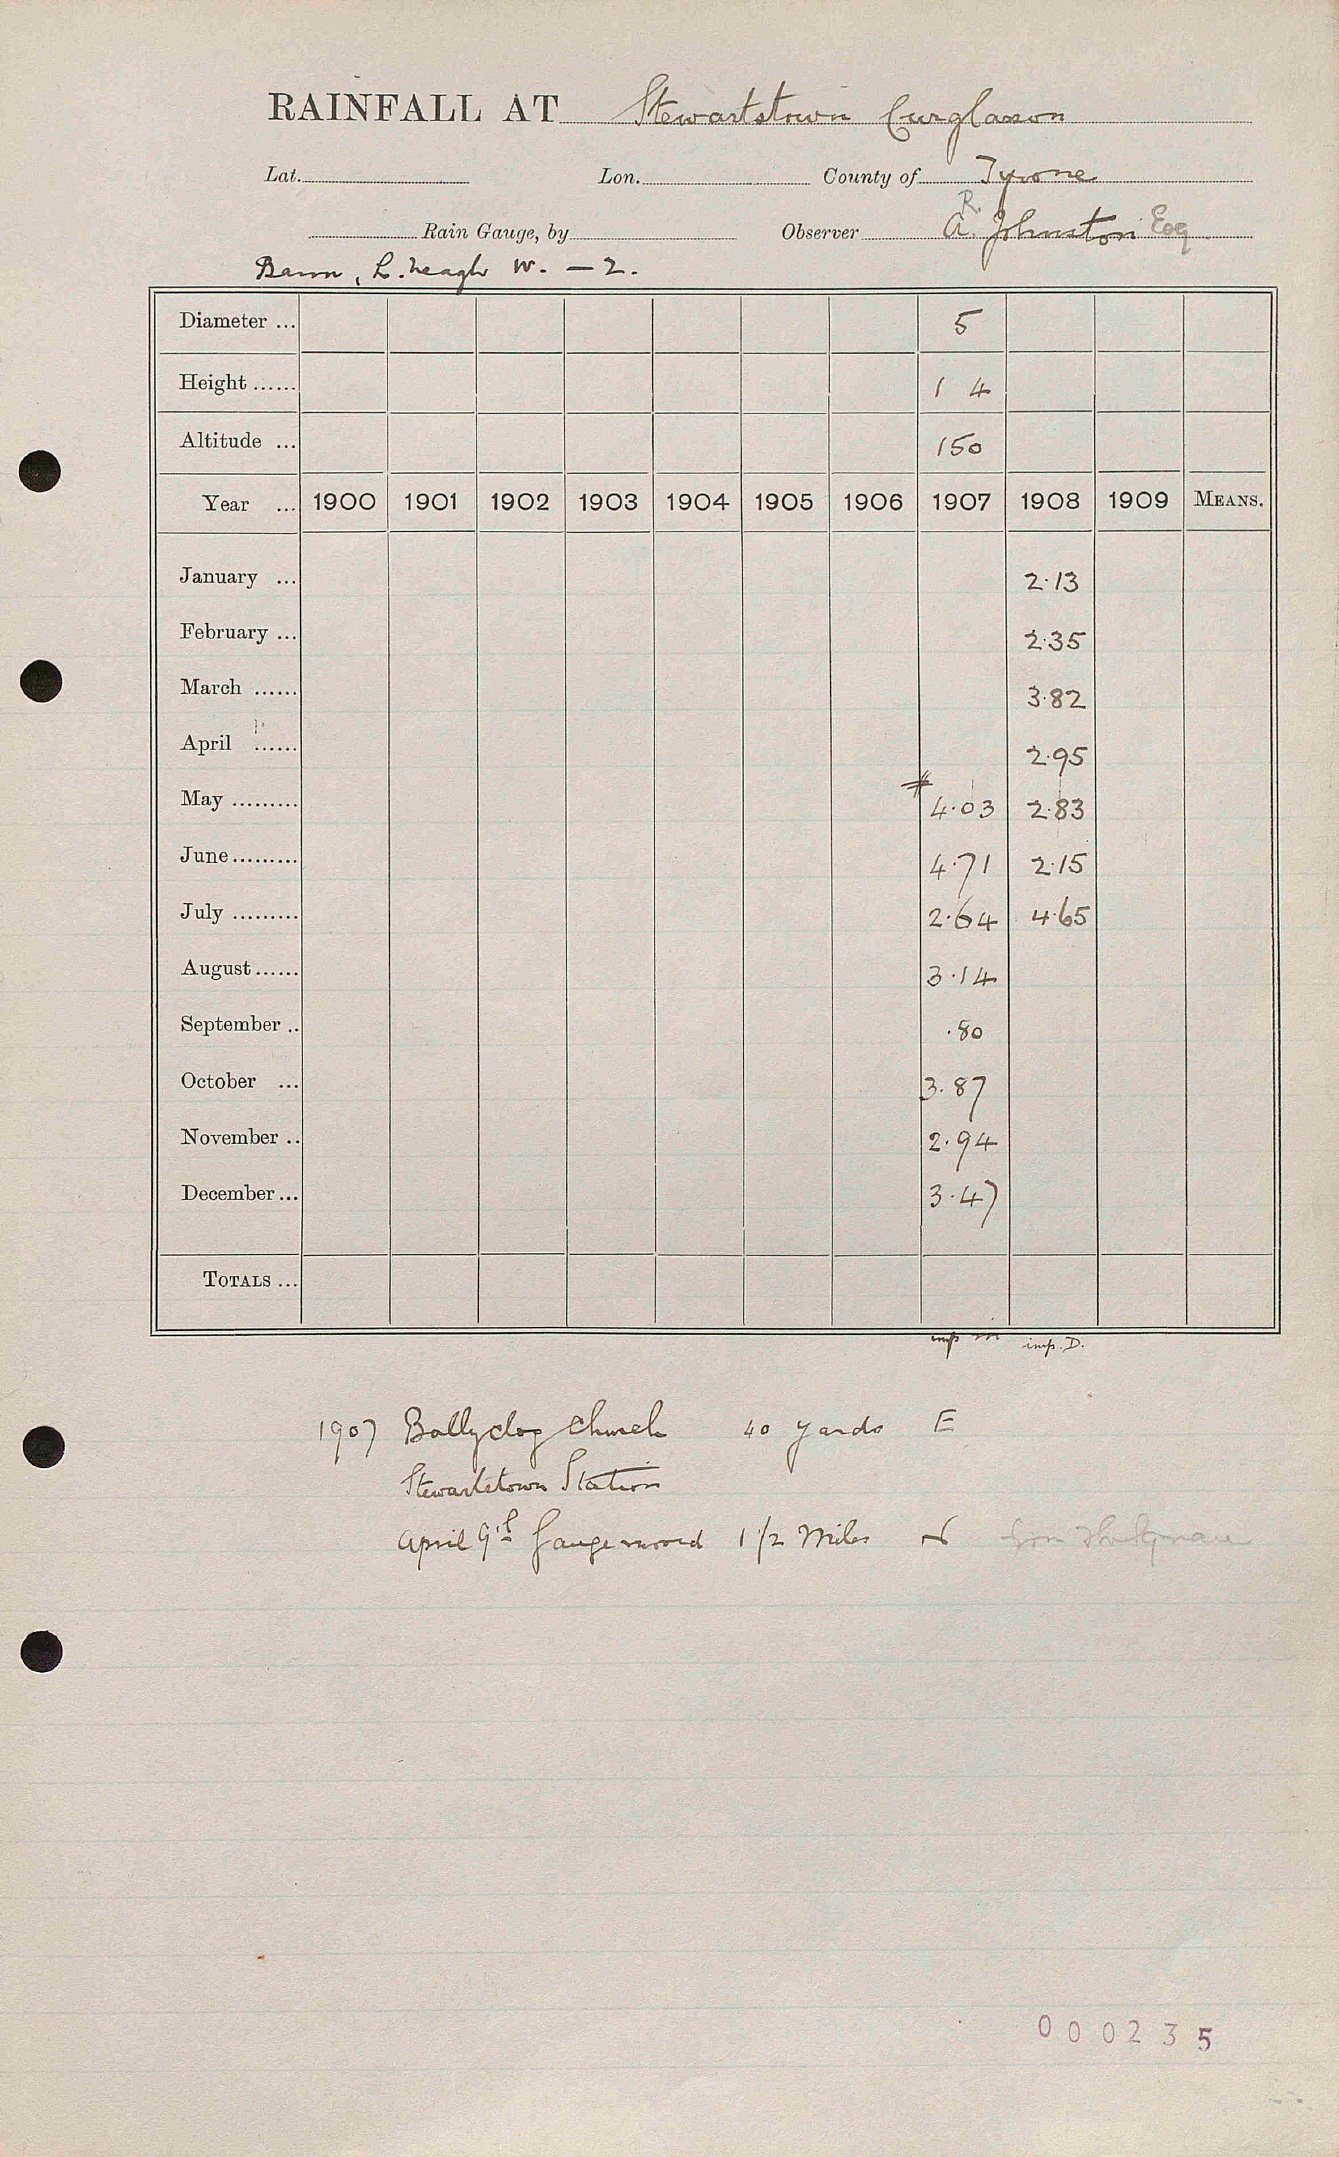 RAINFALL AT Stewartstown Curglasson
Lat. Lon. County of Tyrone
R.
Rain Gauge, by Observer A. Johnston Esq
Bann, L. Neagh W. — 2.
Diameter ... 5
Height ...... 1 4
Altitude ... 150
Year ... 1900 1901 1902 1903 1904 1905 1906 1907 1908 1909 MEANS.
January ... 2.13
February ... 2.35
March ...... 3.82
April ...... 2.95
May ......... # 4.03 2.83
June ......... 4.71 2.15
July ......... 2.64 4.65
August ...... 3.14
September .. .80
October ... 3.87
November .. 2.94
December ... 3.47
TOTALS ...
imp m imp. D.
1907 Ballyclog Church 40 yards E
Stewartstown Station
April 9th Gauge moved 1 1/2 Miles N from
000235